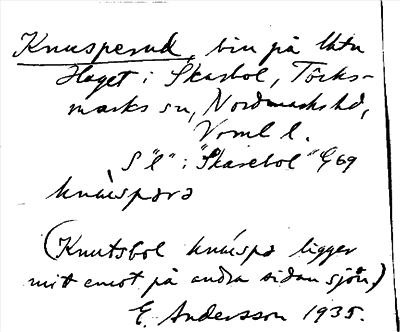 Knusperud, bin på
Haget i Skarbol, Töcks-
marks sn, Nordmarks hd,
Vrml l.
S "l" i "Skarebol" G 69
(Knutsbol ligger
mitt emot på andra sidan sjön.)
E. Andersson 1935.